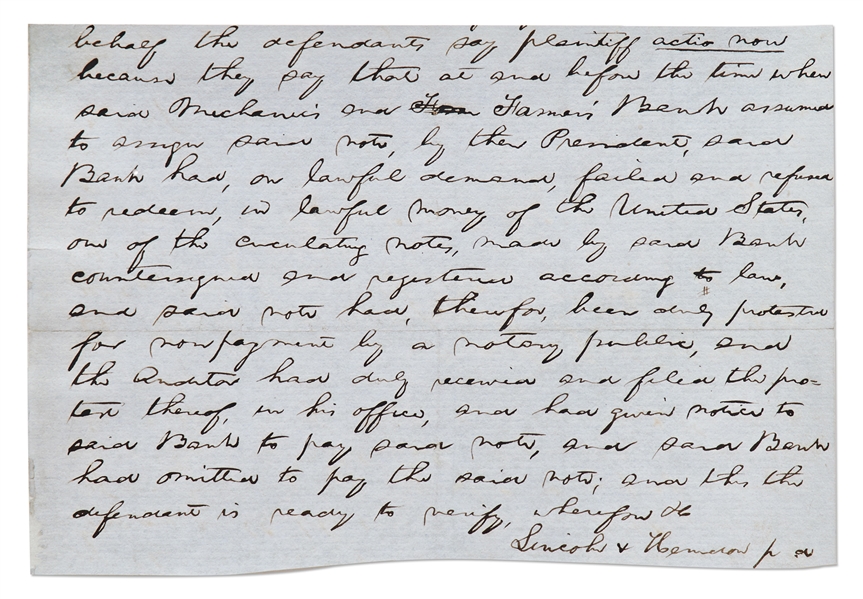 behalf the defendants say plaintiff actio now
because they say that at and before the time when
said Mechanics and Farmers' Bank assumed
to assign said note, by their President, said
Bank had, on lawful demand, failed and refused
to redeem, in lawful money of the United States,
one of the circulating notes, made by said Bank
countersigned and registered according to law,
and said note had, therefor, been duly protested
for nonpayment by a notary public, and
the Auditor had duly received and filed the pro=
test thereof, in his office, and had given notice to
said Bank to pay said note, and said Bank
had omitted to pay the said note; and this the
defendant is ready to verify, wherefore &c
Lincoln & Herndon p d